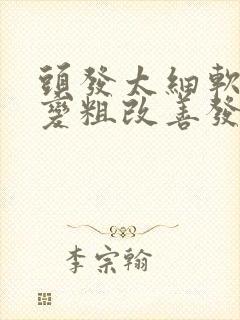 頭發太細軟
變粗改善發
李宗翰